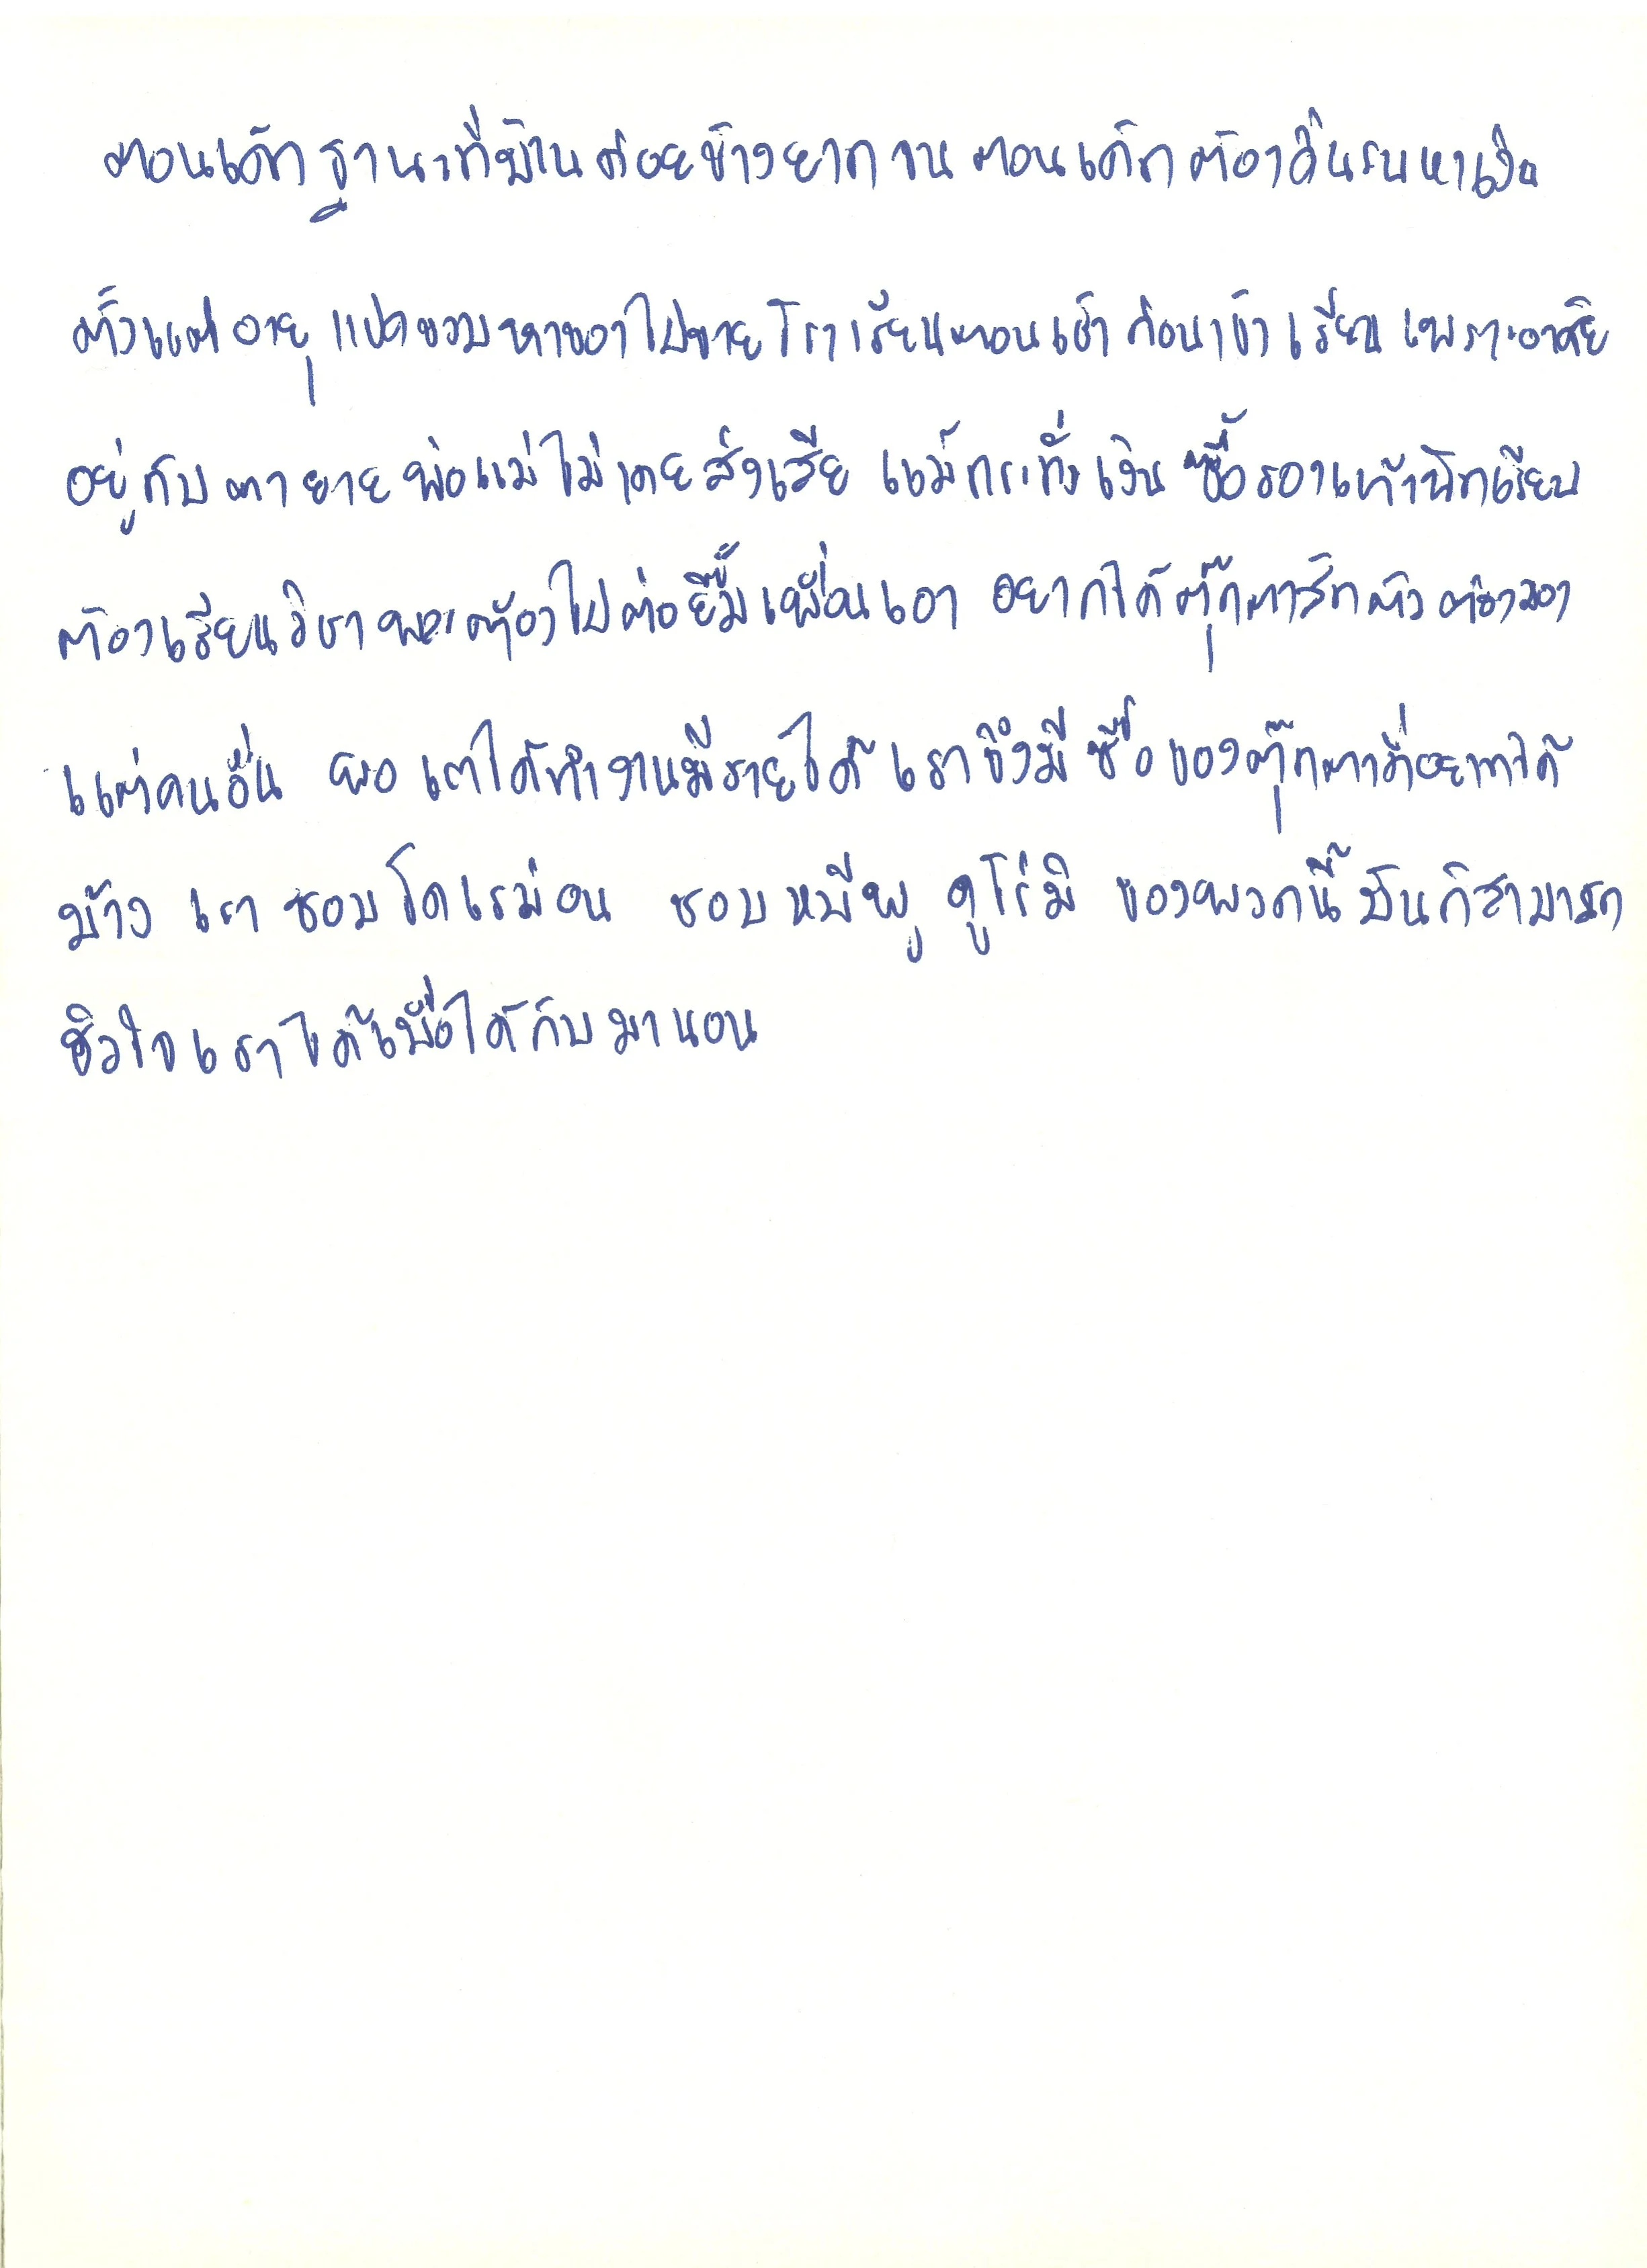 ตอนเด็ก ฐานะที่บ้านค่อยข้างยากจน ตอนเด็กต้องดิ้นรนหาเงิน
ตั้งแต่อายุแปดขวบ หาของไปขายโรงเรียนตอนเช้าก่อนเข้าเรียน เพราะอาศัย
อยู่กับตายาย พ่อแม่ไม่เคยส่งเสีย แม้กระทั่งเงินซื้อรองเท้านักเรียน
ต้องเรียนวิชาพละต้องไปต่อยื๊มเพื่อนเอา อยากได้ตุ๊กตาสักตัวต้องมอง
แต่คนอื่น พอเตได้ทำงานมีรายได้ เราจึงมีซื้อของตุ๊กตาที่อยากได้
บ้าง เราชอบโดเรม่อน ชอบหมีพู คูโรมิ ของพวกนี้มันก็สามารถ
ฮิวใจเราได้เมื่อได้กับมานอน